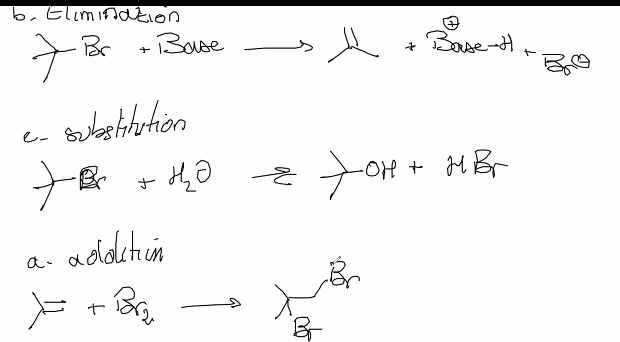 b. Elimination
Br + Base → + Base-H⊕ + Br⊖
c- substitution
Br + H₂O ⇌ OH + HBr
a- addition
+ Br₂ → Br
Br